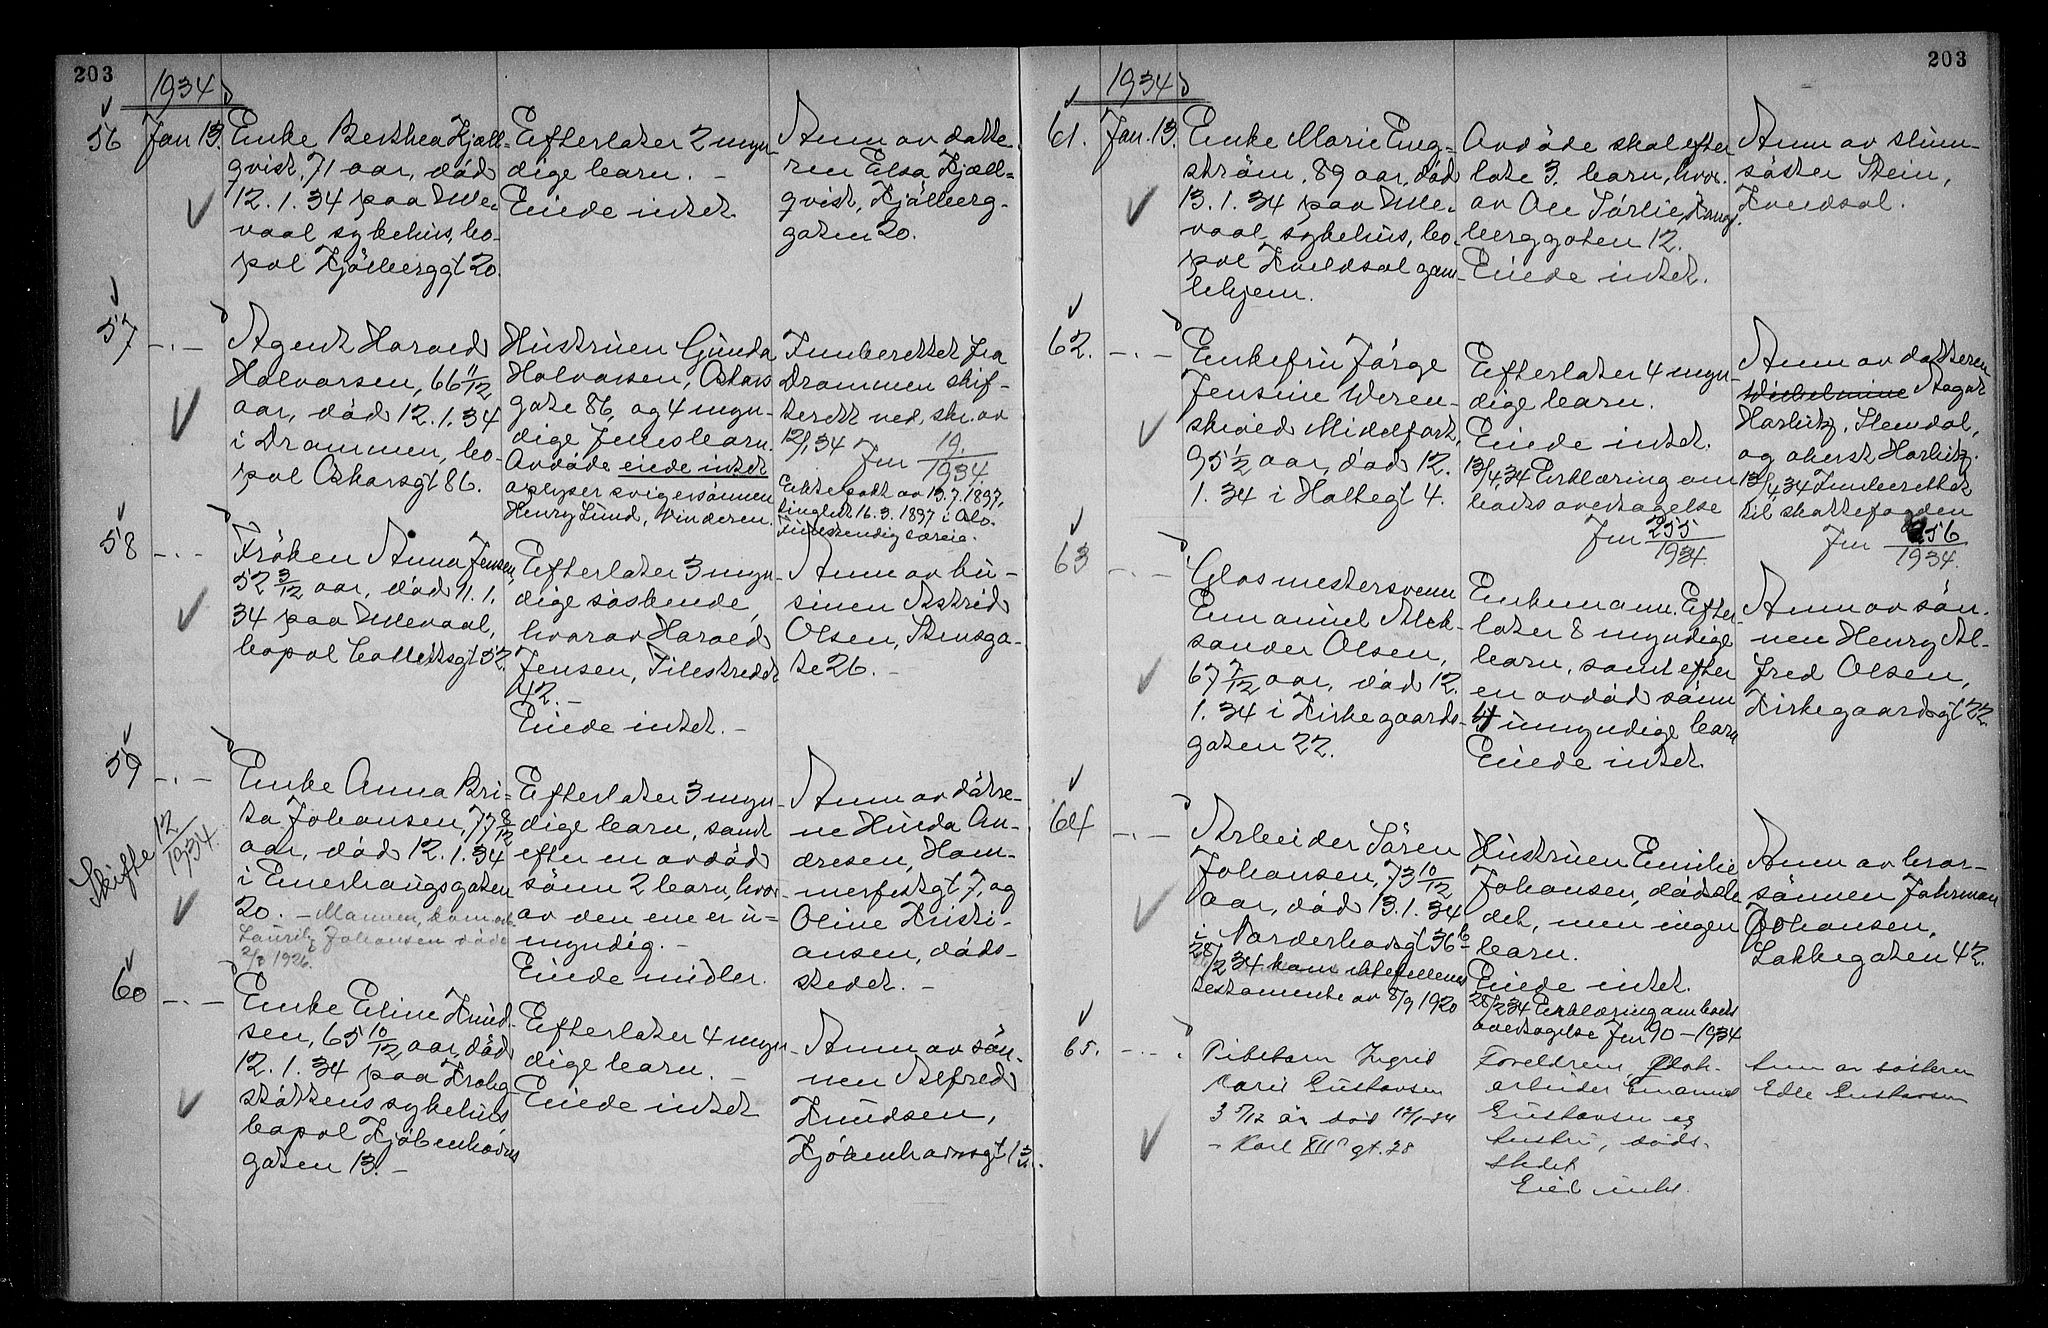 203
1934
56
Jan 13.
Enke Berthea Kjell-
qvist, 71 aar, död
12.1.34 paa Ulle-
vaal sykehus, bo-
pal Kjölberggt 20.
Efterlater 2 myn-
dige barn. -
Eiede intet.
Anm av datte-
ren Elsa Kjell-
qvist, Kjölberg-
gaten 20.
57
-.-
Agent Harald
Halvorsen, 66 11/12
aar, död 12.1.34
i Drammen, bo-
pal Oskarsgt 86.
Hustruen Gunda
Halvorsen, Oskars
gate 86, og 4 myn-
dige fellesbarn.
Avdöde eiede intet
oplyser svigersönnen
Henry Lund, Vinderen.
Innberettet fra
Drammen skif-
terett ved skr. av
12/1 34 Jnr 19/1934.
Ektepakt av 13.7.1897,
tinglest 16.3.1897 i Oslo.
Fullstendig særeie.
58
-.-
Fröken Anna Jensen,
52 3/12 aar, död 11.1.
34 paa Ullevaal,
bopal Collettsgt 52.
Efterlater 3 myn-
dige söskende,
hvorav Harald
Jensen, Pilestredet
42. -
Eiede intet. -
Anm av ku-
sinen Astrid
Olsen, Stensga-
te 26. -
59
-.-
Skifte 12/1934.
Enke Anna Bri-
ta Johansen, 77 8/12
aar, död 12.1.34
i Enerhaugsgaten
20. - Mannen,
Lauritz Johansen döde
2/8 1926.
Efterlater 3 myn-
dige barn, samt
efter en avdöd
sönn 2 barn, hvor
av den ene er u-
myndig. -
Eiede midler.
Anm av dötre-
ne Hulda An-
dresen, Ham-
merfestgt 7, og
Oline Kristi-
ansen, döds-
stedet. -
60
-.-
Enke Eline Knud-
sen, 65 10/12 aar, död
12.1.34 paa Krohg
stöttens sykehus
bopal Kjöbenhavns
gaten 13. -
Efterlater 4 myn-
dige barn. -
Eiede intet
Anm av sön-
nen Alfred
Knudsen,
Kjöbenhavnsgt 13.
203
1934
61.
Jan. 13.
Enke Marie Eng-
ström, 89 aar, död
13.1.34 paa Ulle-
vaal sykehus, bo-
pal Kveldsol gam-
lehjem.
Avdöde skal efter
late 3 barn, hvor-
av Ole Sörlie,
berggaten 12.
Eiede intet.
Anm av
söster Stein,
Kveldsol.
62.
-.-
Enkefru Jörge
Jensine Weren-
skiold Middelfart,
95 1/2 aar, död 12.
1.34 i Holtegt 4.
Efterlater 4 myn-
dige barn.
Eiede intet.
13/4 34 Erklæring om
boets overtagelse
Jnr 255/1934.
Anm av datteren
Wilhelmine Aagot
Harbitz, Slemdal,
og oberst Harbitz.
13/4 34 Innberettet
til skattefogden
Jnr 256/1934.
63
-.-
Glasmestersvenn
Emanuel Alek-
sander Olsen,
67 7/12 aar, död 12.
1.34 i Kirkegaards-
gaten 22.
Enkemann. Efter-
later 8 myndige
barn, samt efter
en avdöd sönn
4 umyndige barn
Eiede intet.
Anm av sön-
nen Henry Al-
fred Olsen,
Kirkegaardsgt 22.
64
-.-
Arbeider Sören
Johansen, 73 10/12
aar, död 13.1.34
i Norderhovsgt 36b
28/2 34 kom ektefellenes
testamente av 8/9 1920
Hustruen Emilie
Johansen, dödsste
det, men ingen
barn.
Eiede intet.
28/2 34 Erklæring om boets
overtagelse Jnr 90-1934
Anm av bror-
sönnen Fahrman
Johansen,
Lakkegaten 42.
65.
-.-
Pikebarn Ingrid
Karin Gustavsen
3 5/12 år död 12/1-34
- Karl XII gt. 28
Foreldrene,
arbeider Emanuel
Gustavsen og
hustru, döds-
stedet
Eied intet.
Anm av söstern
Edle Gustavsen